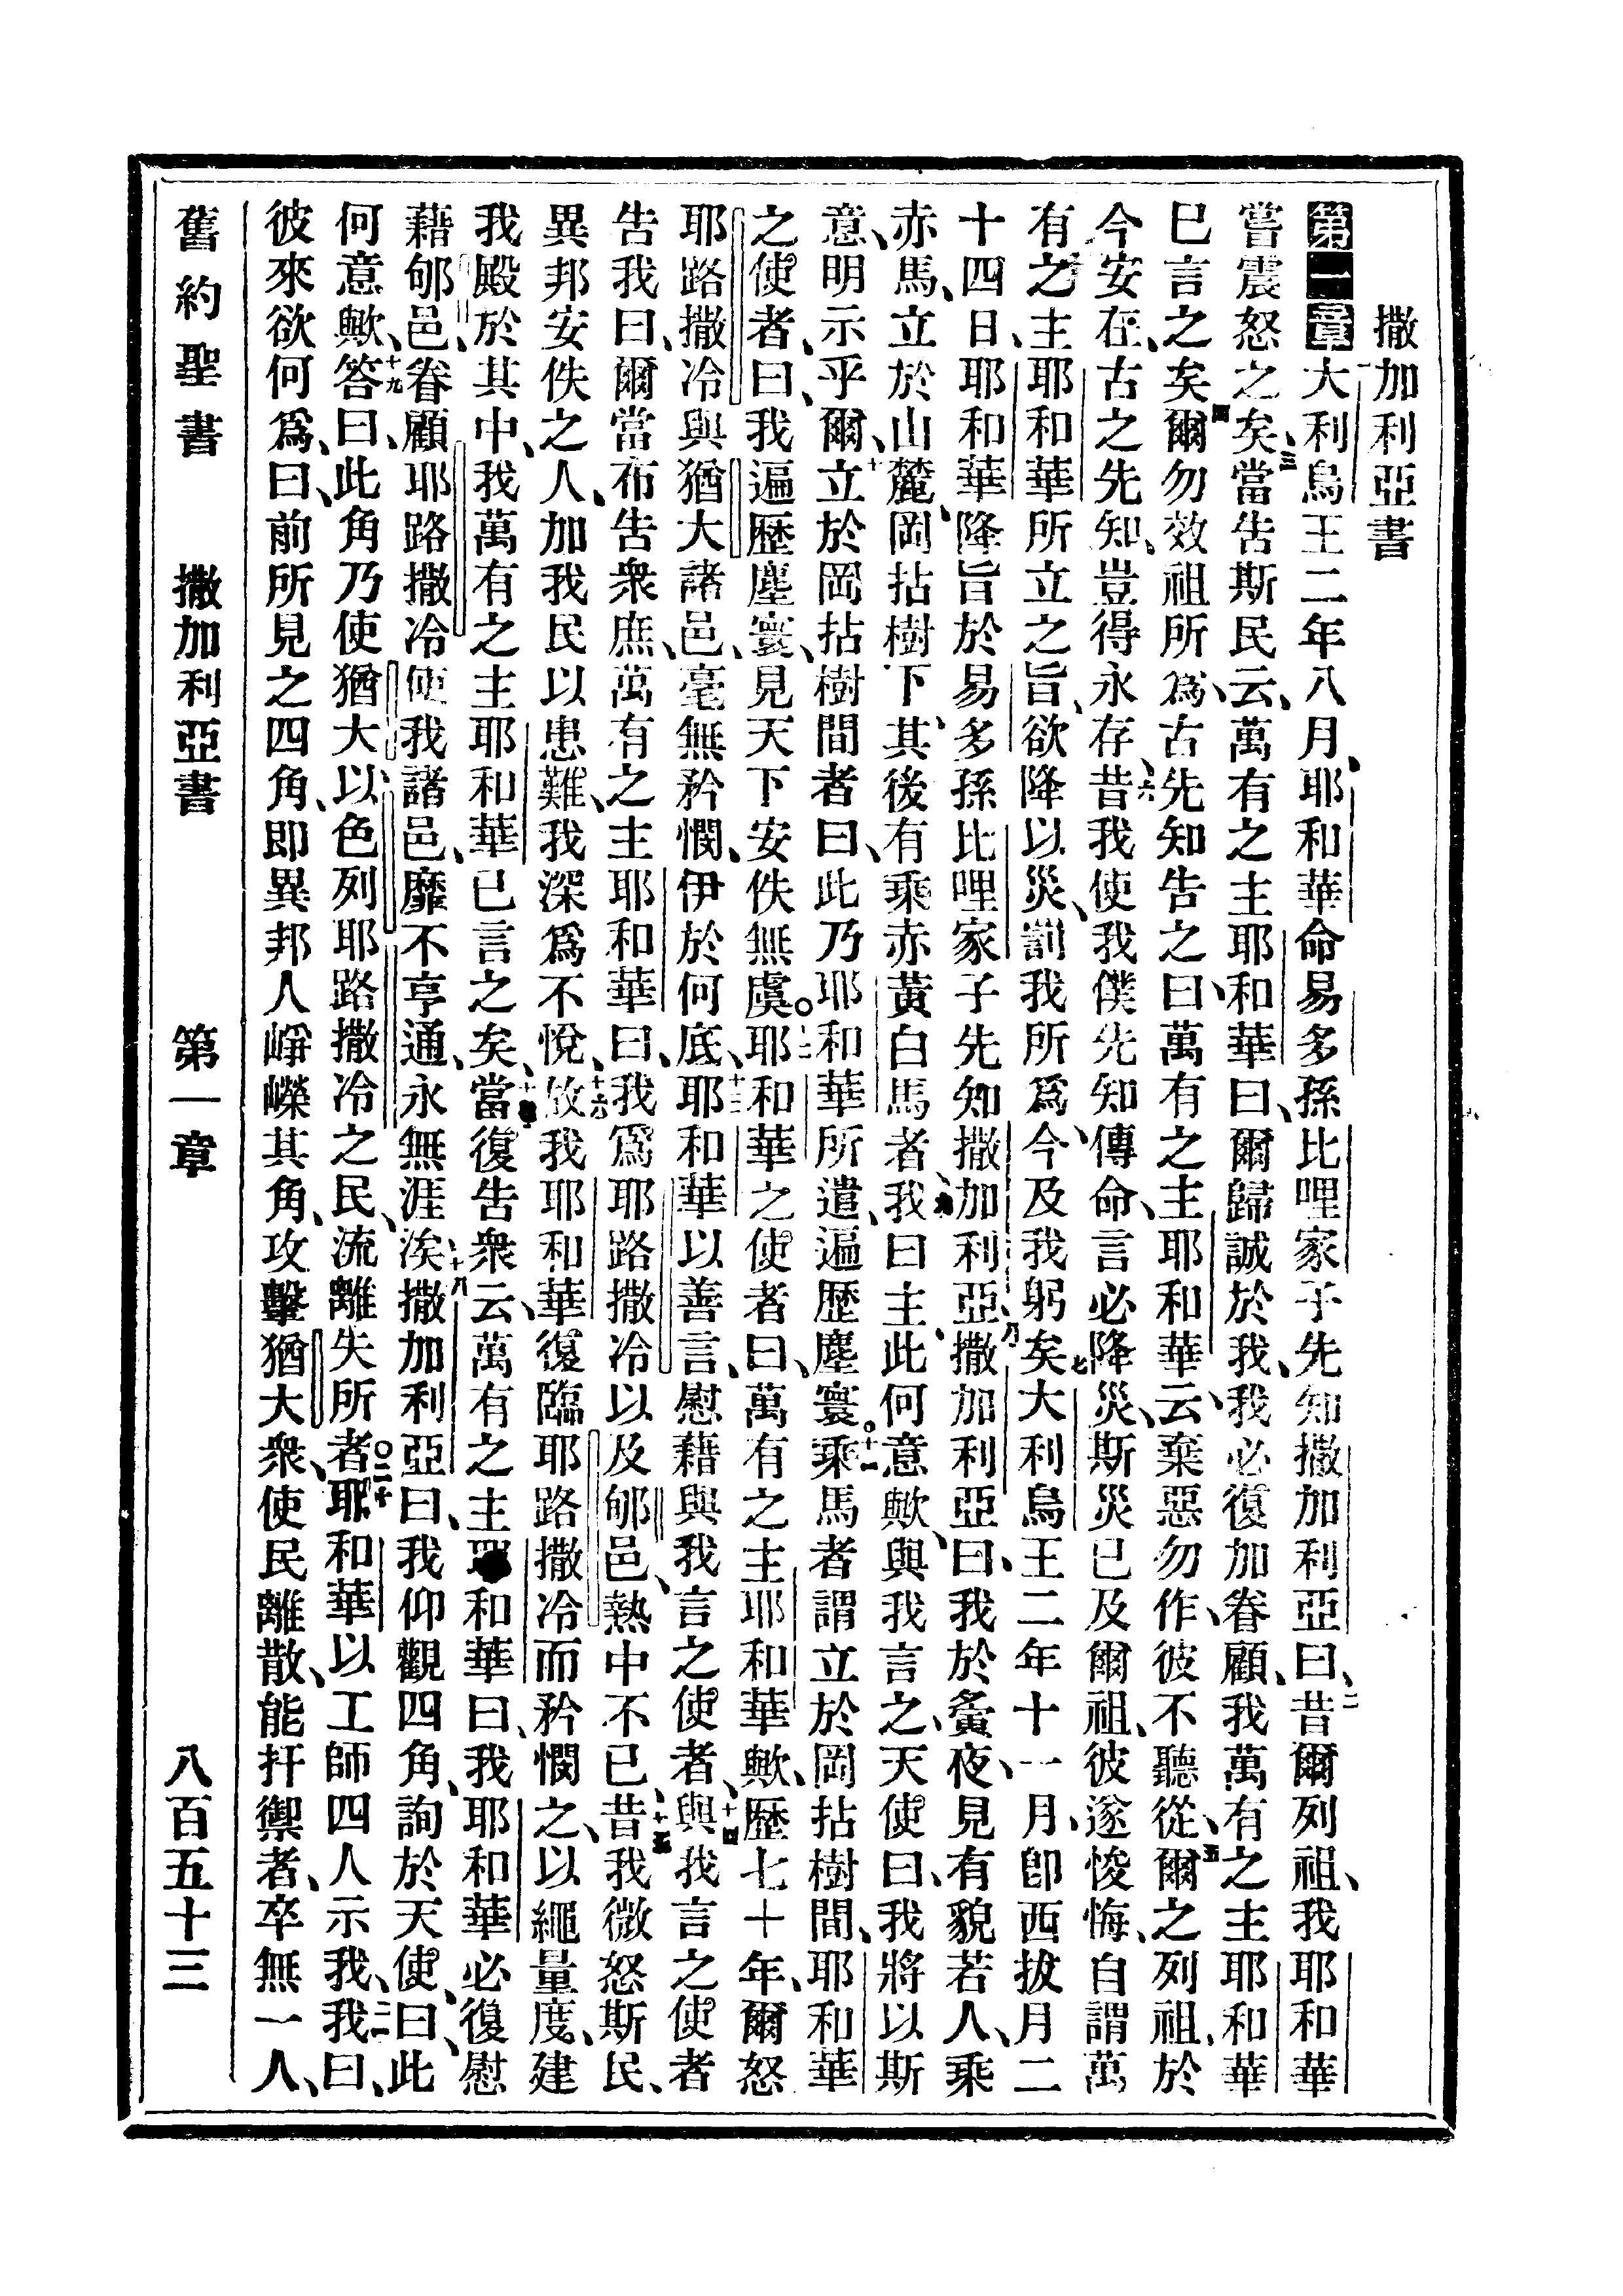 撒加利亞書
第一章大利烏王二年八月、耶和華命易多孫比哩家子先知撒加利亞曰、二昔爾列祖、我耶和華
嘗震怒之矣、三當告斯民云、萬有之主耶和華曰、爾歸誠於我、我必復加眷顧、我萬有之主耶和華
已言之矣、四爾勿效祖所爲、古先知告之曰、萬有之主耶和華云、棄惡勿作、彼不聽從、五爾之列祖、於
今安在、古之先知、豈得永存、六昔我使我僕先知傳命、言必降災、斯災已及爾祖、彼遂悛悔、自謂萬
有之主耶和華所立之旨、欲降以災、罰我所爲、今及我躬矣、七大利烏王二年十一月、卽西拔月二
十四日、耶和華降旨於易多孫比哩家子先知撒加利亞、八撒加利亞曰、我於夤夜、見有貌若人、乘
赤馬、立於山麓、岡拈樹下、其後有乘赤黃白馬者、九我曰、主、此何意歟、與我言之、天使曰、我將以斯
意、明示乎爾、十立於岡拈樹間者曰、此乃耶和華所遣、遍歷塵寰、十一乘馬者謂立於岡拈樹間、耶和華
之使者、曰、我遍歷塵寰、見天下安佚無虞。十二耶和華之使者曰、萬有之主耶和華歟、歷七十年、爾怒
耶路撒冷與猶大諸邑、毫無矜憫、伊於何底、十三耶和華以善言、慰藉與我言之使者、十四與我言之使者
告我曰、爾當布告衆庶、萬有之主耶和華曰、我爲耶路撒冷以及郇邑、熱中不已、十五昔我微怒斯民、
異邦安佚之人、加我民以患難、我深爲不悅、十六故我耶和華復臨耶路撒冷而矜憫之、以繩量度、建
我殿於其中、我萬有之主耶和華已言之矣、十七當復告衆云、萬有之主耶和華曰、我耶和華必復慰
藉郇邑、眷顧耶路撒冷、使我諸邑、靡不亨通、永無涯涘、十八撒加利亞曰、我仰觀四角、詢於天使曰、此
何意歟、十九答曰、此角乃使猶大以色列耶路撒冷之民、流離失所者、○二十耶和華以工師四人示我、二一我曰、
彼來欲何爲、曰、前所見之四角、卽異邦人崢嶸其角、攻擊猶大衆、使民離散、能扞禦者、卒無一人、
舊約聖書 撒加利亞書 第一章 八百五十三